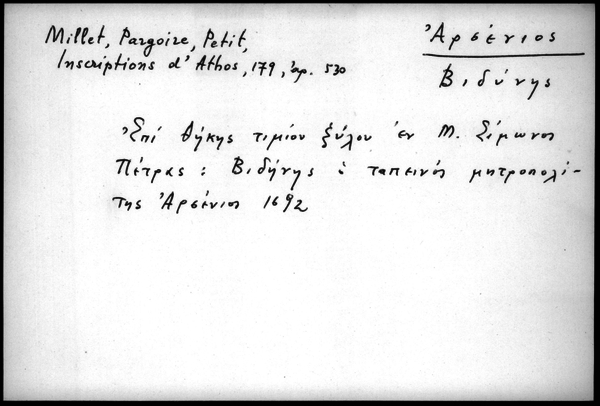 Millet, Pargoire, Petit,
Inscriptions d'Athos, 179, ἀρ. 530
Ἀρσένιος
Βιδύνης
Ἐπί θήκης τιμίου ξύλου ἐν Μ. Σίμωνος
Πέτρας : Βιδήνης ὁ ταπεινός μητροπολί-
της Ἀρσένιος 1692